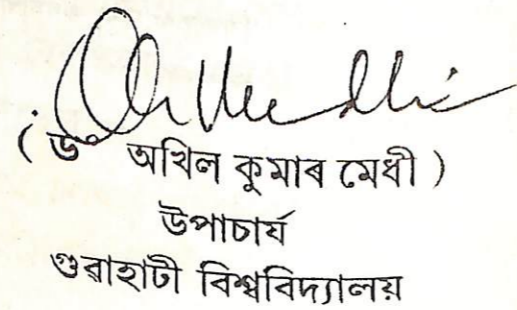 ( ড° অখিল কুমাৰ মেধী )
উপাচাৰ্য
গুৱাহাটী বিশ্ববিদ্যালয়